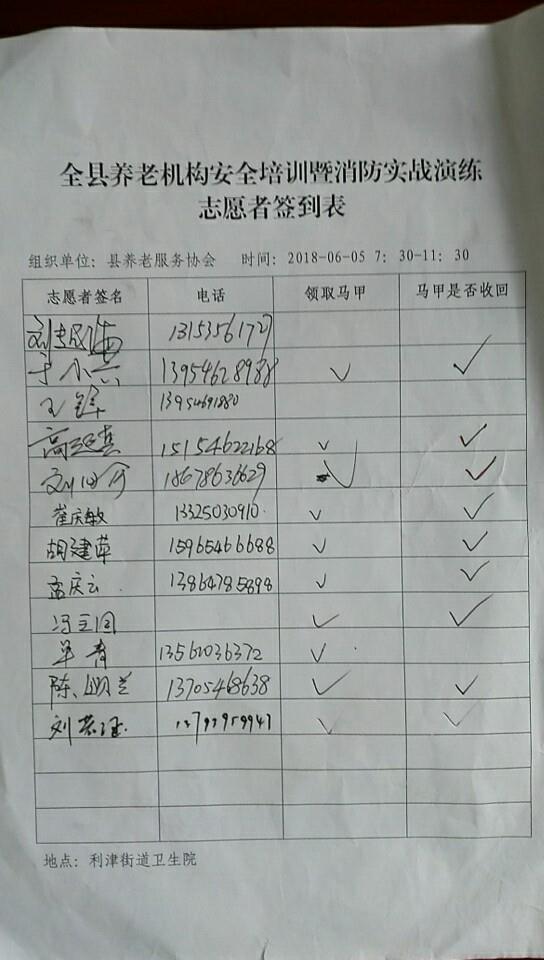 全县养老机构安全培训暨消防实战演练
志愿者签到表
组织单位：县养老服务协会 时间：2018-06-05 7：30-11：30
志愿者签名 电话 领取马甲 马甲是否收回
于小六 13954628988 ✓ ✓
13954691880
15154622168 ✓ ✓
18678636629 ✓ ✓
崔庆敏 13325030910 ✓ ✓
胡建革 15965466688 ✓ ✓
孟庆云 13864785898 ✓ ✓
✓ ✓
单青 13561036372 ✓
陈 兰 13705468638 ✓ ✓
刘 ✓ ✓
地点：利津街道卫生院